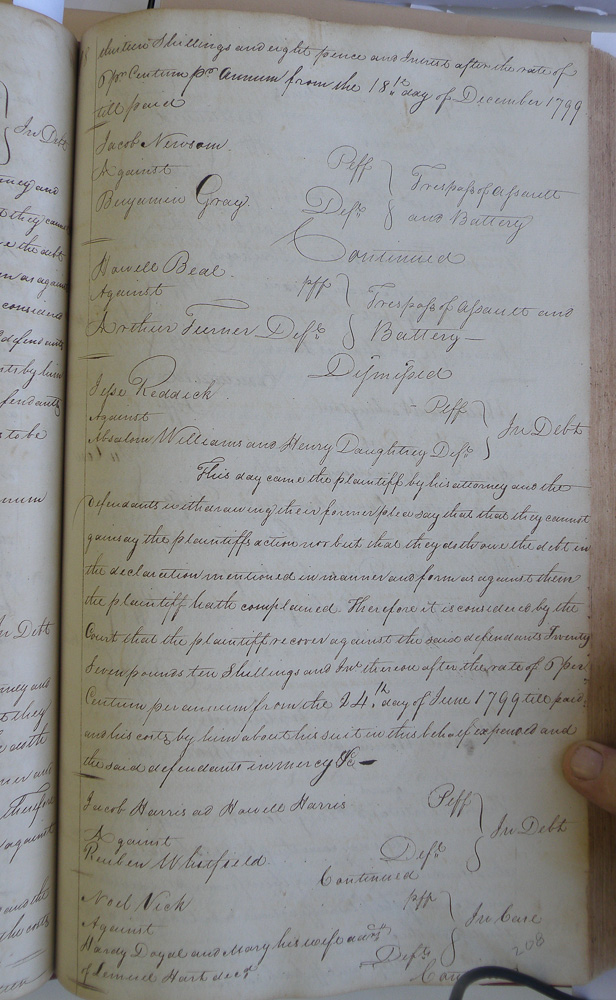 thirteen Shillings and eight pence and Interest after the rate of
6 pr Centum pr Annum from the 18.th day of December 1799
till paid
Jacob Newsom. Plff
Against Trespass of Assault
Benjamin Gray. Deft and Battery
Continued
Howell Beal. plff
Against Trespass of Assault and
Arthur Turner Deft Battery—
Dismissed
Jesse Reddick Plff
Against In Debt
Absalom Williams and Henry Daughtrey Defts
This day came the plaintiff by his attorney and the
defendants withdrawing their former plea say that that they cannot
gainsay the plaintiffs action nor but that they doth owe the debt in
the declaration mentioned in manner and form as against them
the plaintiff hath complained. Therefore it is considered by the
Court that the plaintiff recover against the said defendants Twenty
Seven pounds ten Shillings and Int. thereon after the rate of 6 per
Centum per annum from the 24.th day of June 1799 till paid
and his costs by him about his suit in this behalf expended and
the said defendants in mercy &c—
Jacob Harris ad Howell Harris Plff
Against In Debt
Reuben Whitfield. Deft
Continued
Noel Vick plff
Against In Case
Hardy Doyal and Mary his wife
of Lemuel Hart decd Defts
208
In Debt
they came
the debt
as against
considered
defendants
by him
defendants
to be
In Debt
they
Therefore
against